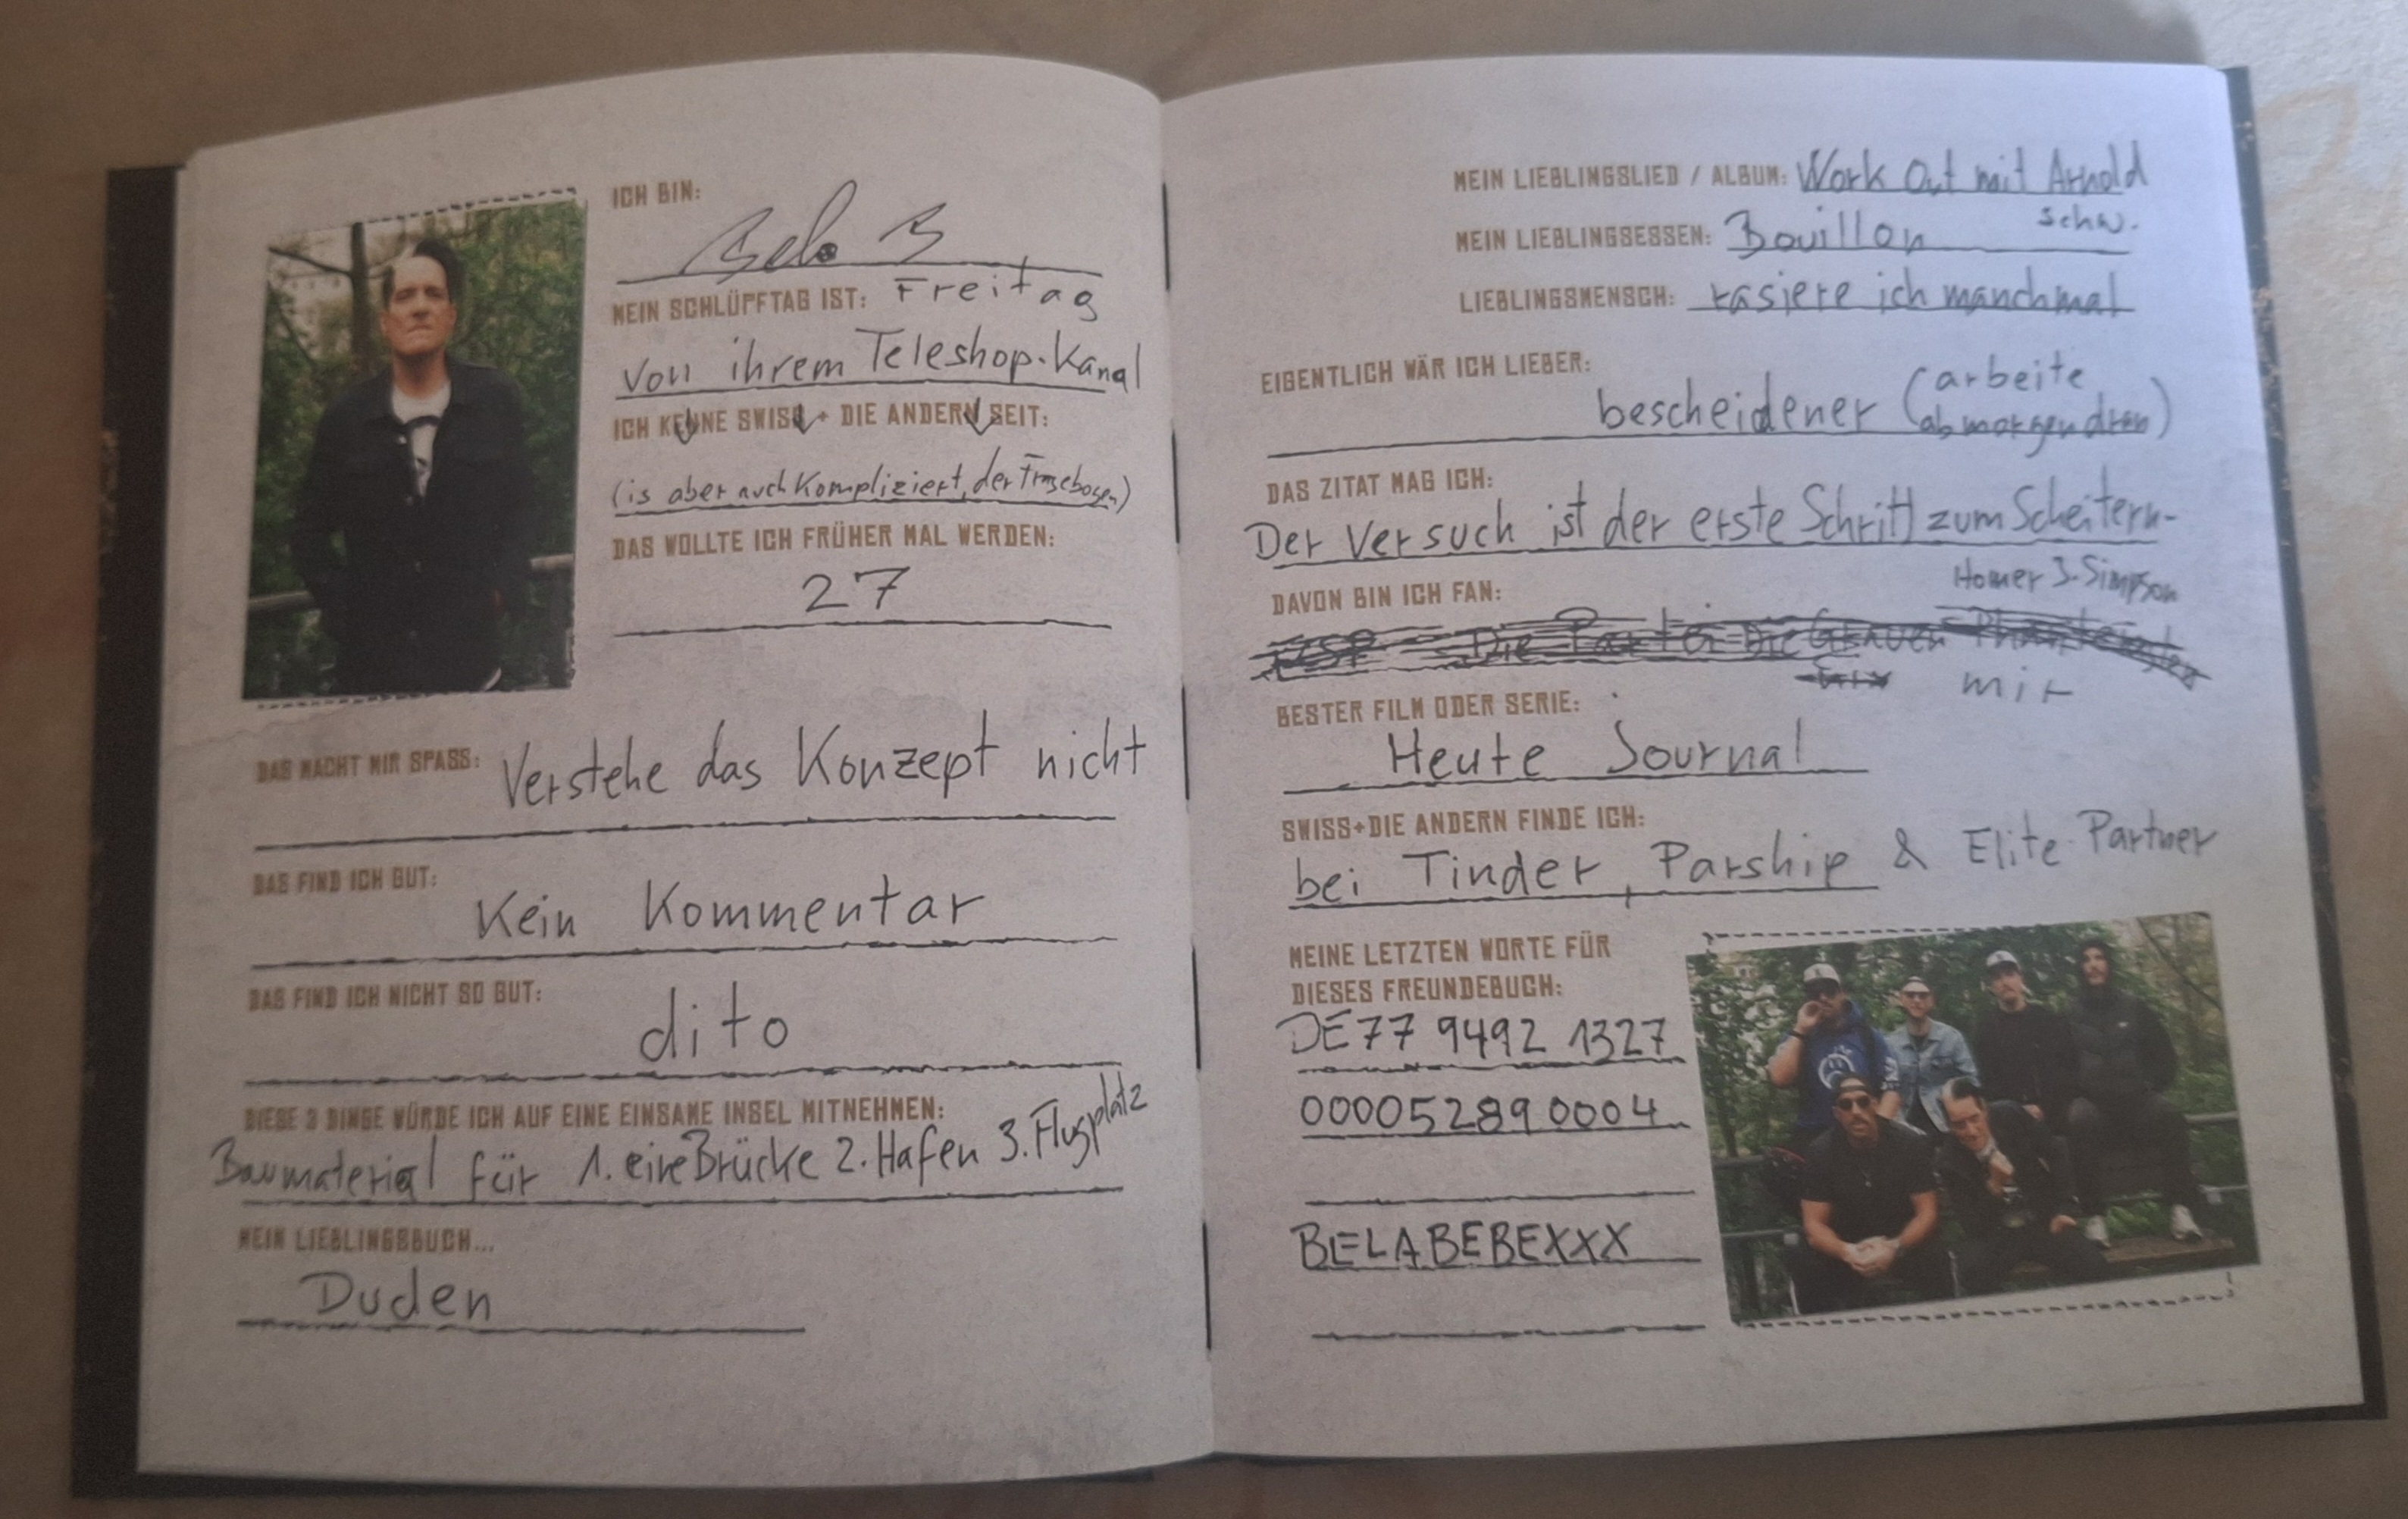 ICH BIN:
Bela B
MEIN SCHLÜPFTAG IST: Freitag
von ihrem Teleshop-Kanal
ICH KENNE SWISS + DIE ANDERN SEIT:
(is aber auch Kompliziert, der Fragebogen)
DAS WOLLTE ICH FRÜHER MAL WERDEN:
27
DAS MACHT MIR SPASS: Verstehe das Konzept nicht
DAS FIND ICH GUT:
Kein Kommentar
DAS FIND ICH NICHT SO GUT:
dito
DIESE 3 DINGE WÜRDE ICH AUF EINE EINSAME INSEL MITNEHMEN:
Baumaterial für 1. eine Brücke 2. Hafen 3. Flugplatz
MEIN LIEBLINGSBUCH...
Duden
MEIN LIEBLINGSLIED / ALBUM: Work Out mit Arnold
schw.
MEIN LIEBLINGSESSEN: Bouillon
LIEBLINGSMENSCH: rasiere ich manchmal
EIGENTLICH WÄR ICH LIEBER:
bescheidener (arbeite
ab morgen dran)
DAS ZITAT MAG ICH:
Der Versuch ist der erste Schritt zum Scheitern-
Homer J. Simpson
DAVON BIN ICH FAN:
Die Partei Die Grauen
mir
BESTER FILM ODER SERIE:
Heute Journal
SWISS+DIE ANDERN FINDE ICH:
bei Tinder, Parship & Elite-Partner
MEINE LETZTEN WORTE FÜR
DIESES FREUNDEBUCH:
DE77 9492 1327
00005289 0004
BELABEBEXXX